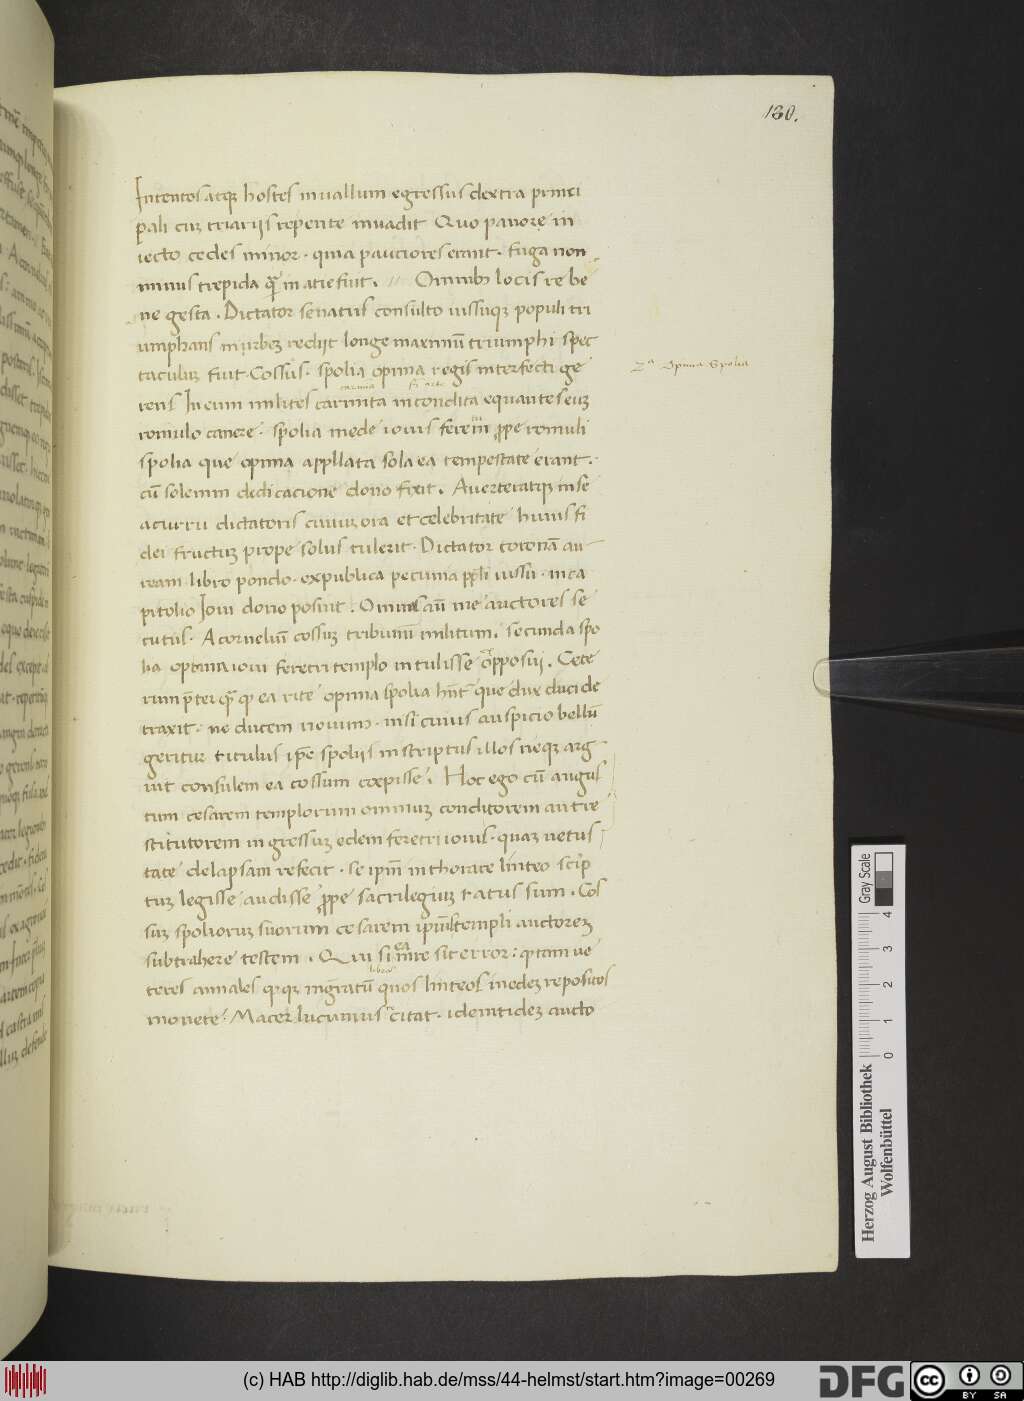 130.
Intentos atq; hostes in vallum egressus dextra princi
pali cuz triariis repente invadit Quo pavore in
iecto cedes minor · quia pauciores erant · fuga non
minus trepida q̃ʒ in atie fuit . // Omnibʒ locis re be
ne gesta . Dictator senatus consulto iussuq; populi tri
umphans in urbez rediit longe maximũ triumphi spec
taculuz fuit · Cossus · spolia opima regis interfecti ge
rens In eum milites carmina incondita equantes euz
romulo canere · spolia in ede iovis feretrii ꝓpe romuli
spolia que opima appllata sola ea tempestate erant .·
cũ solemni dedicacione dono fixit . Averteratq; in se
a curru dictatoris civiuz ora et celebritate huius fi
dei fructuz prope solus tulerit · Dictator coronã au
ream · libre pondo · ex publica pecunia ppli iussu · in ca
pitolio Iovi dono posuit . Omnes aũt me auctores se
cutus · A corneliũ cossuz tribunũ militum . secunda spo
lia opima iovi feretri templo intulisse opposui . Cete
rum p̃ter q̃ʒ qp ea rite opima spolia hñt que dux duci de
traxit · ne ducem novim · nisi cuius auspicio bellũ
geritur titulus ip̃e spoliis inscriptus illos neq; arg
uit consulem ea cossum cœpisse . Hoc ego cũ augus
tum cesarem templorum omniuz conditorem aut re
stitutorem ingressuz edem feretri iovis · quaz vetus
tate delapsam refecit · se ipm̃ in thorace linteo scip
tuz legisse audisse ꝓpe sacrilegiuz ratus sum . Cos
suz spoliorum suorum cesarem ipiũs templi auctorez
subtrahere testem . Qui si ea in re sit error : qp tam ve
teres annales qp qz magratũ libros quos linteos in edez repositos
monete · Macer lucinius citat · idemtidez aucto
Opima Spolia
Herzog August Bibliothek
Wolfenbüttel
Gray Scale
0 1 2 3 4
(c) HAB http://diglib.hab.de/mss/44-helmst/start.htm?image=00269
DFG
cc BY SA